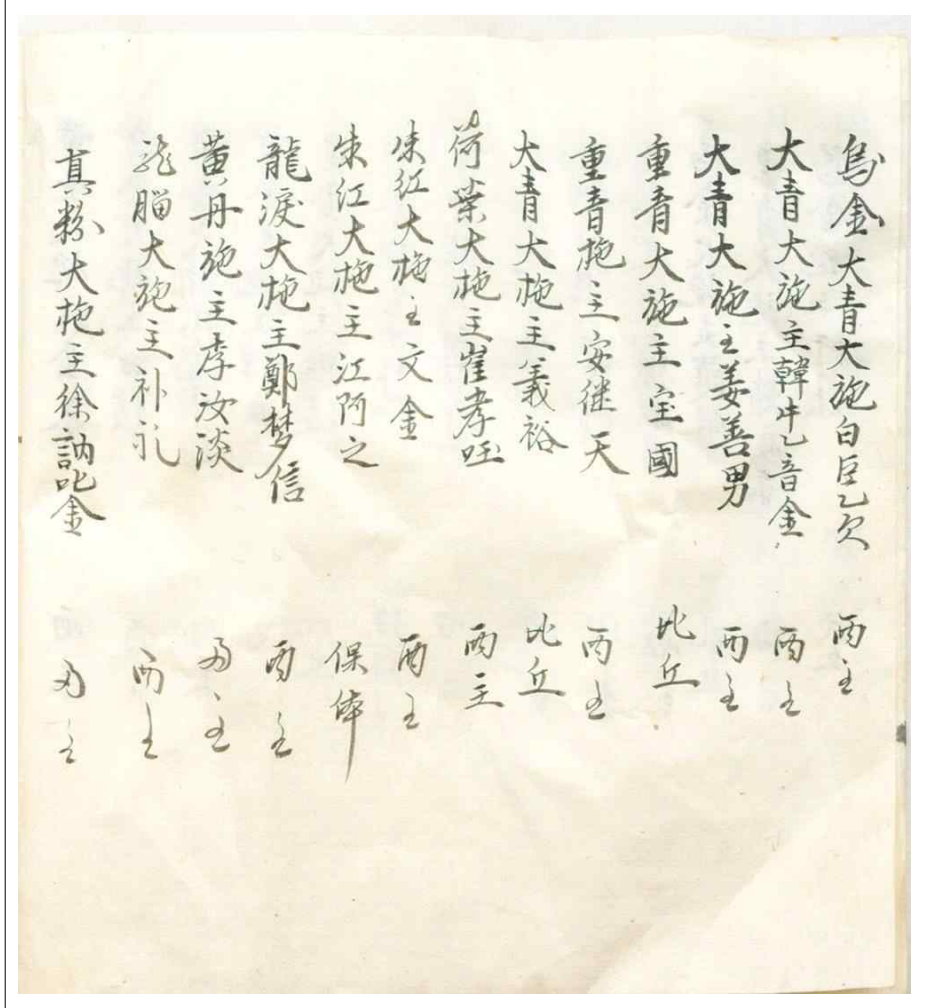 烏金大青大施白臣乙欠 両主
大青大施主韓牛乙音金 両主
大青大施主姜善男 両主
重青大施主宝國 比丘
重青施主安继天 両主
大青大施主義裕 比丘
荷葉大施主崔孝 両主
朱红大施主文金 両主
朱红大施主江阿之 保体
龍淚大施主鄭梦信 両主
黄丹施主李汝淡 両主
龍腦大施主补礼 両主
真粉大施主徐訥叱金 両主